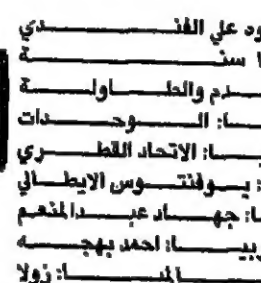 ود علي الفنـــــدي
ا سنـــــــــة
ـدم والطـــاولـــة
ــا: الـــوحـــدات
ـــا: الاتحاد القطـــري
: يـــوفنتـــوس الايطـــالي
ـا: جهـــاد عبـــدالمنعم
ربيـــــا: احمد بهجـــــه
ـــالميـــــا: زولا